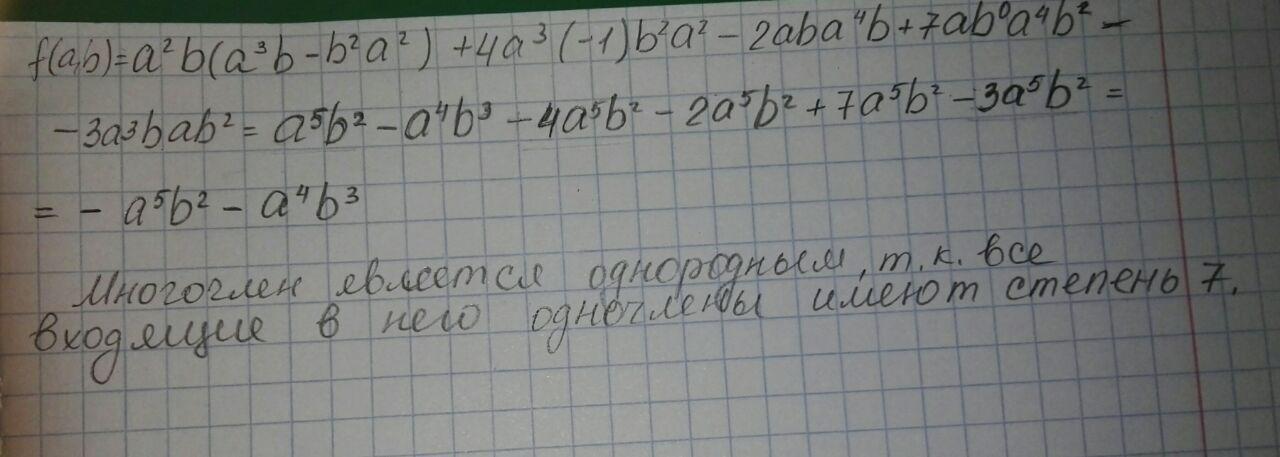 f(a,b)=a²b(a³b-b²a²)+4a³(-1)b²a²-2aba⁴b+7ab⁰a⁴b²-
-3a³bab²=a⁵b²-a⁴b³-4a⁵b²-2a⁵b²+7a⁵b²-3a⁵b²=
=-a⁵b²-a⁴b³
Многочлен является однородным, т.к. все
входящие в него одночлены имеют степень 7.